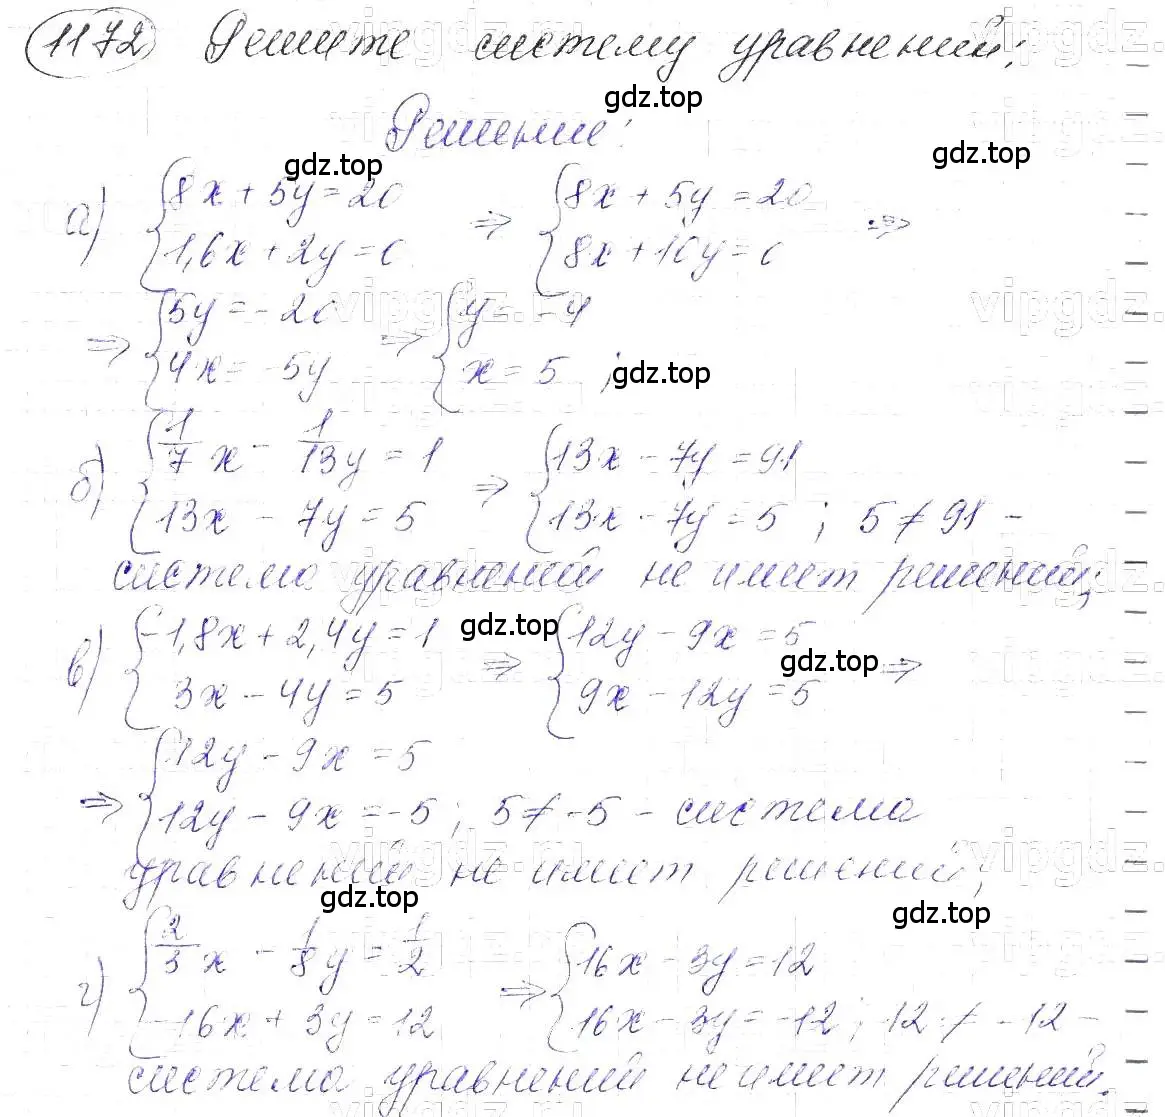 1172 Решите систему уравнений:
gdz.top
Решение:
gdz.top
gdz.top
а) {8x + 5y = 20 ⇒ {8x + 5y = 20 ⇒
{1,6x + 2y = 0 {8x + 10y = 0
⇒ {5y = -20 ⇒ {y = -4
{4x = -5y {x = 5 ;
gdz.top
б) {1/7 x - 1/13 y = 1 ⇒ {13x - 7y = 91
{13x - 7y = 5 {13x - 7y = 5 ; 5 ≠ 91 -
система уравнений не имеет решений;
в) {-1,8x + 2,4y = 1 ⇒ {12y - 9x = 5 ⇒
{3x - 4y = 5 {9x - 12y = 5
gdz.top
gdz.top
⇒ {12y - 9x = 5
{12y - 9x = -5 ; 5 ≠ -5 - система
уравнений не имеет решений;
gdz.top
gdz.top
г) {2/3 x - 1/8 y = 1/2 ⇒ {16x - 3y = 12
{-16x + 3y = 12 {16x - 3y = -12 ; 12 ≠ -12 -
система уравнений не имеет решений.